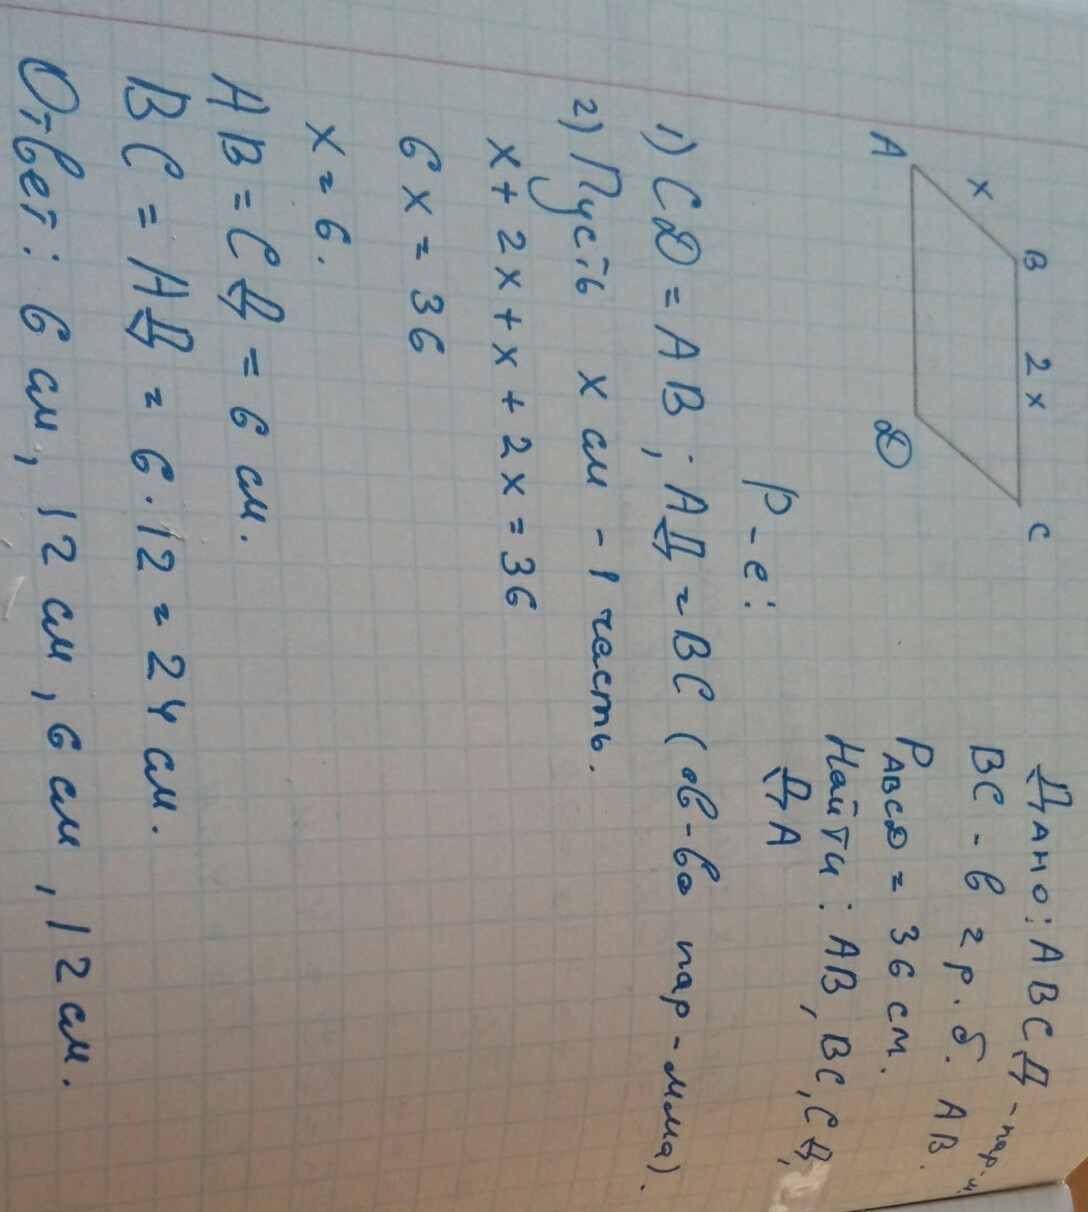 B 2x C
x
A D
Дано: ABCД - пар-м
BC - в 2 р. б. AB.
PABCD = 36 см.
Найти: AB, BC, CД,
ДA
Р-е:
1) CD = AB; AД = BC (св-во пар-мма).
2) Пусть x см - 1 часть.
x + 2x + x + 2x = 36
6x = 36
x = 6.
AB = CД = 6 см.
BC = AД = 6 · 12 = 24 см.
Ответ: 6 см, 12 см, 6 см, 12 см.